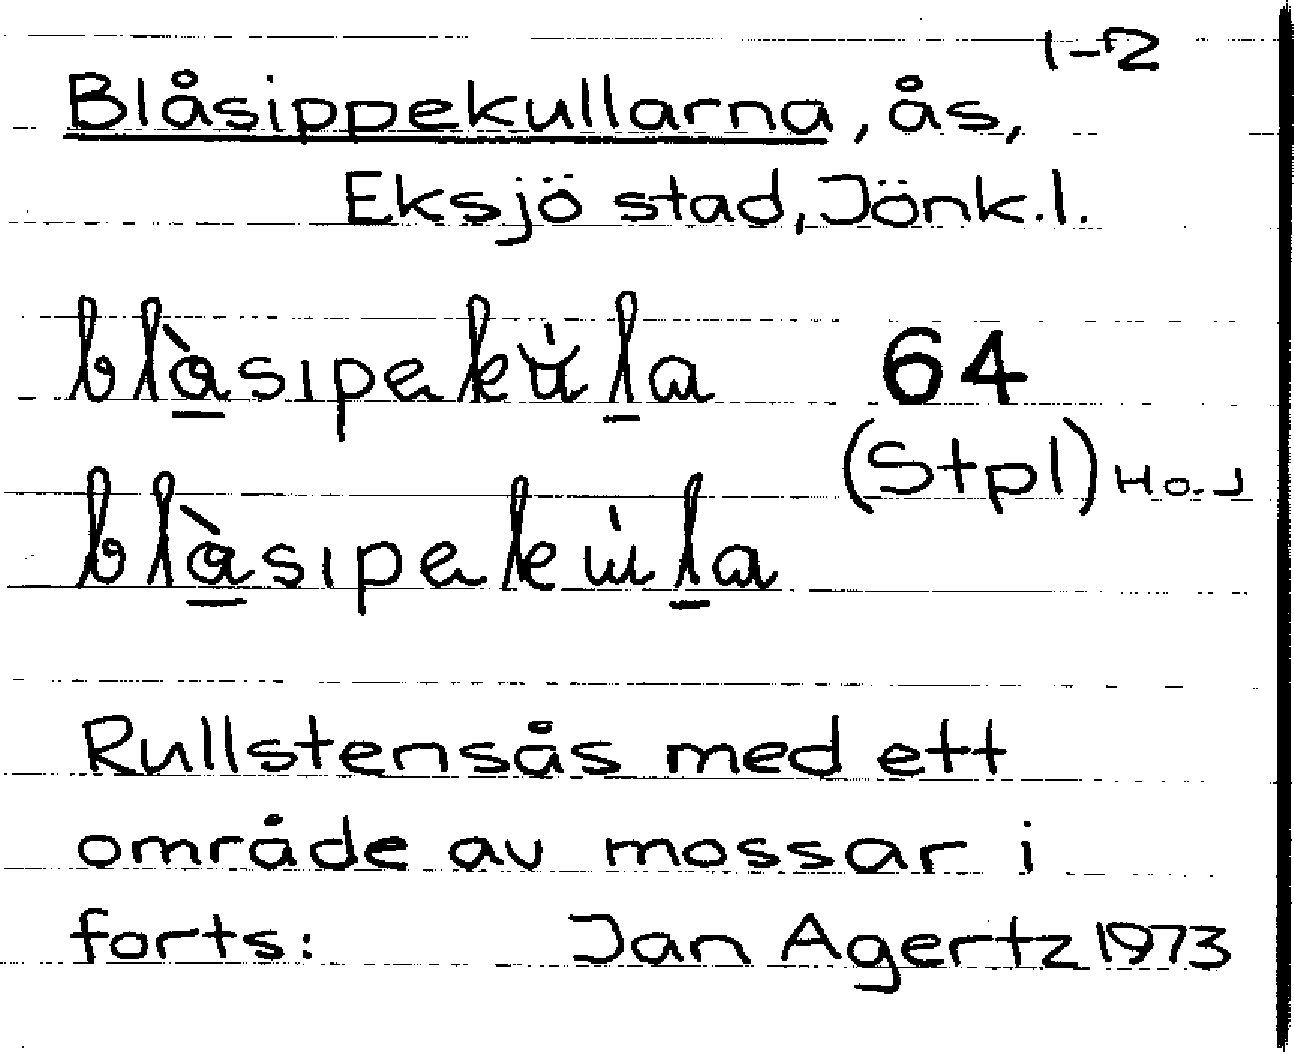 1-2
Blåsippekullarna, ås,
Eksjö stad, Jönk.l.
blàsıpekùla 64
(Stpl) Ho.J
blàsıpekùla
Rullstensås med ett
område av mossar i
forts: Jan Agertz 1973